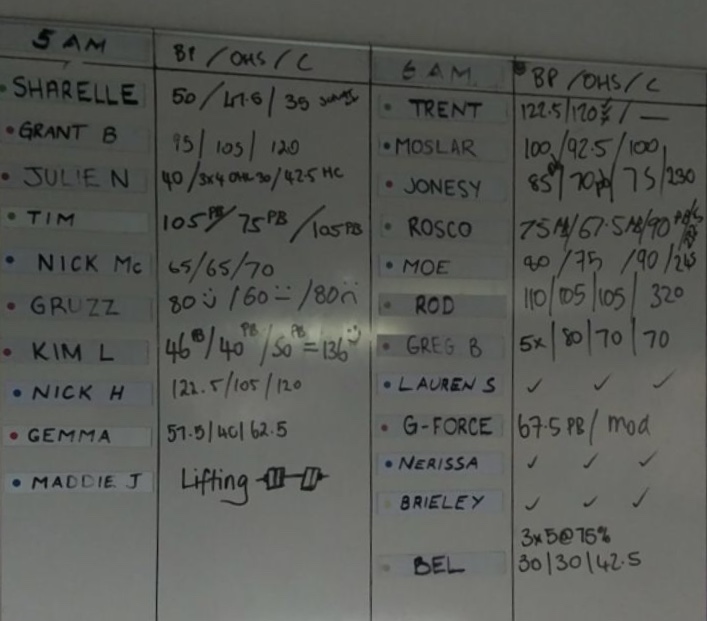 5 AM BP / OHS / C
SHARELLE 50 / 47.5 / 35
GRANT B 95 / 105 / 120
JULIE N 40 / 3x4 OHS 30 / 42.5 HC
TIM 105 PB / 75 PB / 105 PB
NICK Mc 65/65/70
GRUZZ 80 / 60 / 80
KIM L 46 PB / 40 PB / 50 PB = 136
NICK H 122.5/105/120
GEMMA 57.5/40/62.5
MADDIE J Lifting
6 AM BP / OHS / C
TRENT 122.5/120 / —
MOSLAR 100/92.5/100
JONESY 85 / 70 pb / 75 / 230
ROSCO 75 / 67.5 / 90
MOE 80 / 75 / 90 /
ROD 110/105/105/ 320
GREG B 5x/80/70/70
LAUREN S ✓ ✓ ✓
G-FORCE 67.5 PB / mod
NERISSA ✓ ✓ ✓
BRIELEY ✓ ✓ ✓
3x5@75%
BEL 30/30/42.5